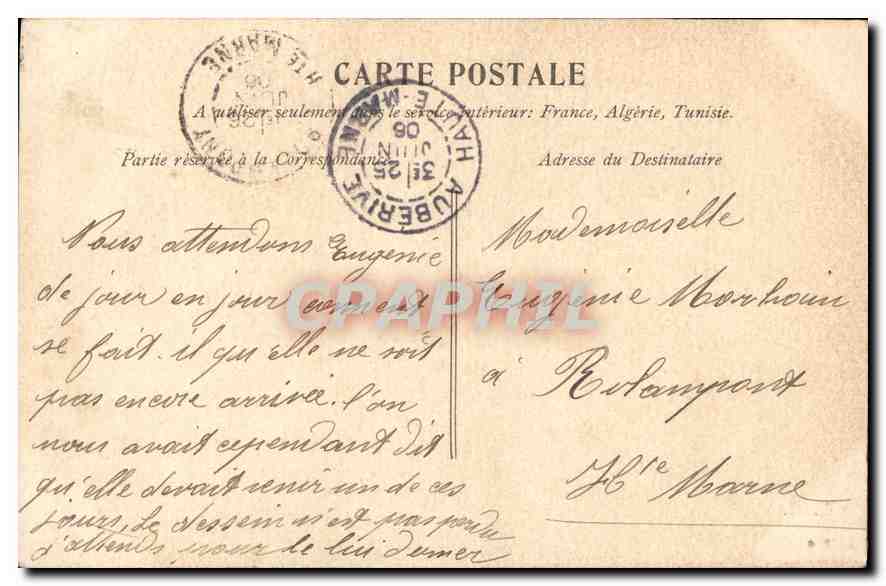 CARTE POSTALE
A utiliser seulement dans le service intérieur: France, Algérie, Tunisie.
Partie réservée à la Correspondance
Adresse du Destinataire
HTE MARNE
AUBERIVE HAUTE-MARNE
3E 25
JUIN
06
Nous attendons Eugenie
de jour en jour coment
se fait-il qu'elle ne soit
pas encore arrivée. l'on
nous avait cependant dit
qu'elle devait venir un de ces
jours, Le dessein n'est pas perdu
j'attends pour le lui donner
Mademoiselle
Eugénie Morhain
à Rolampont
Hte Marne
CPAPHIL